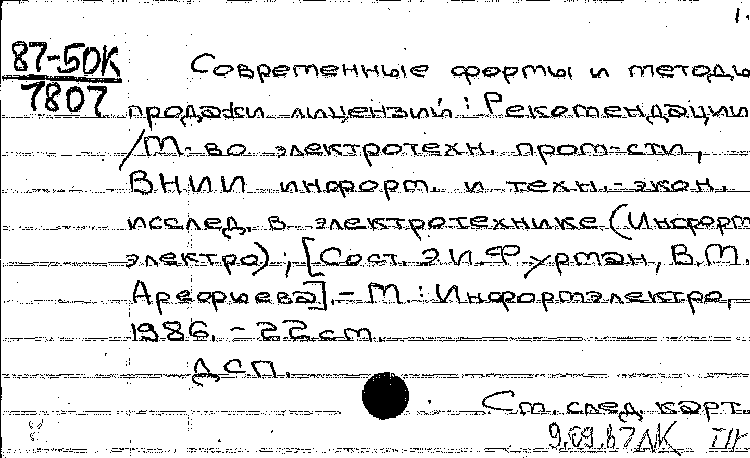 1.
87-50К
7807
Современные формы и методы
продажи лицензий : Рекомендации
/М-во электротехн. пром-сти,
ВНИИ информ. и техн.-экон.
исслед. в электротехнике (Информ
электро) ; [Сост. Э.И.Фурман, В.М.
Арефьева]. - М. : Информэлектро,
1986. - 22 см.
ДСП.
См. след. карт.
9.09.87 ЛК